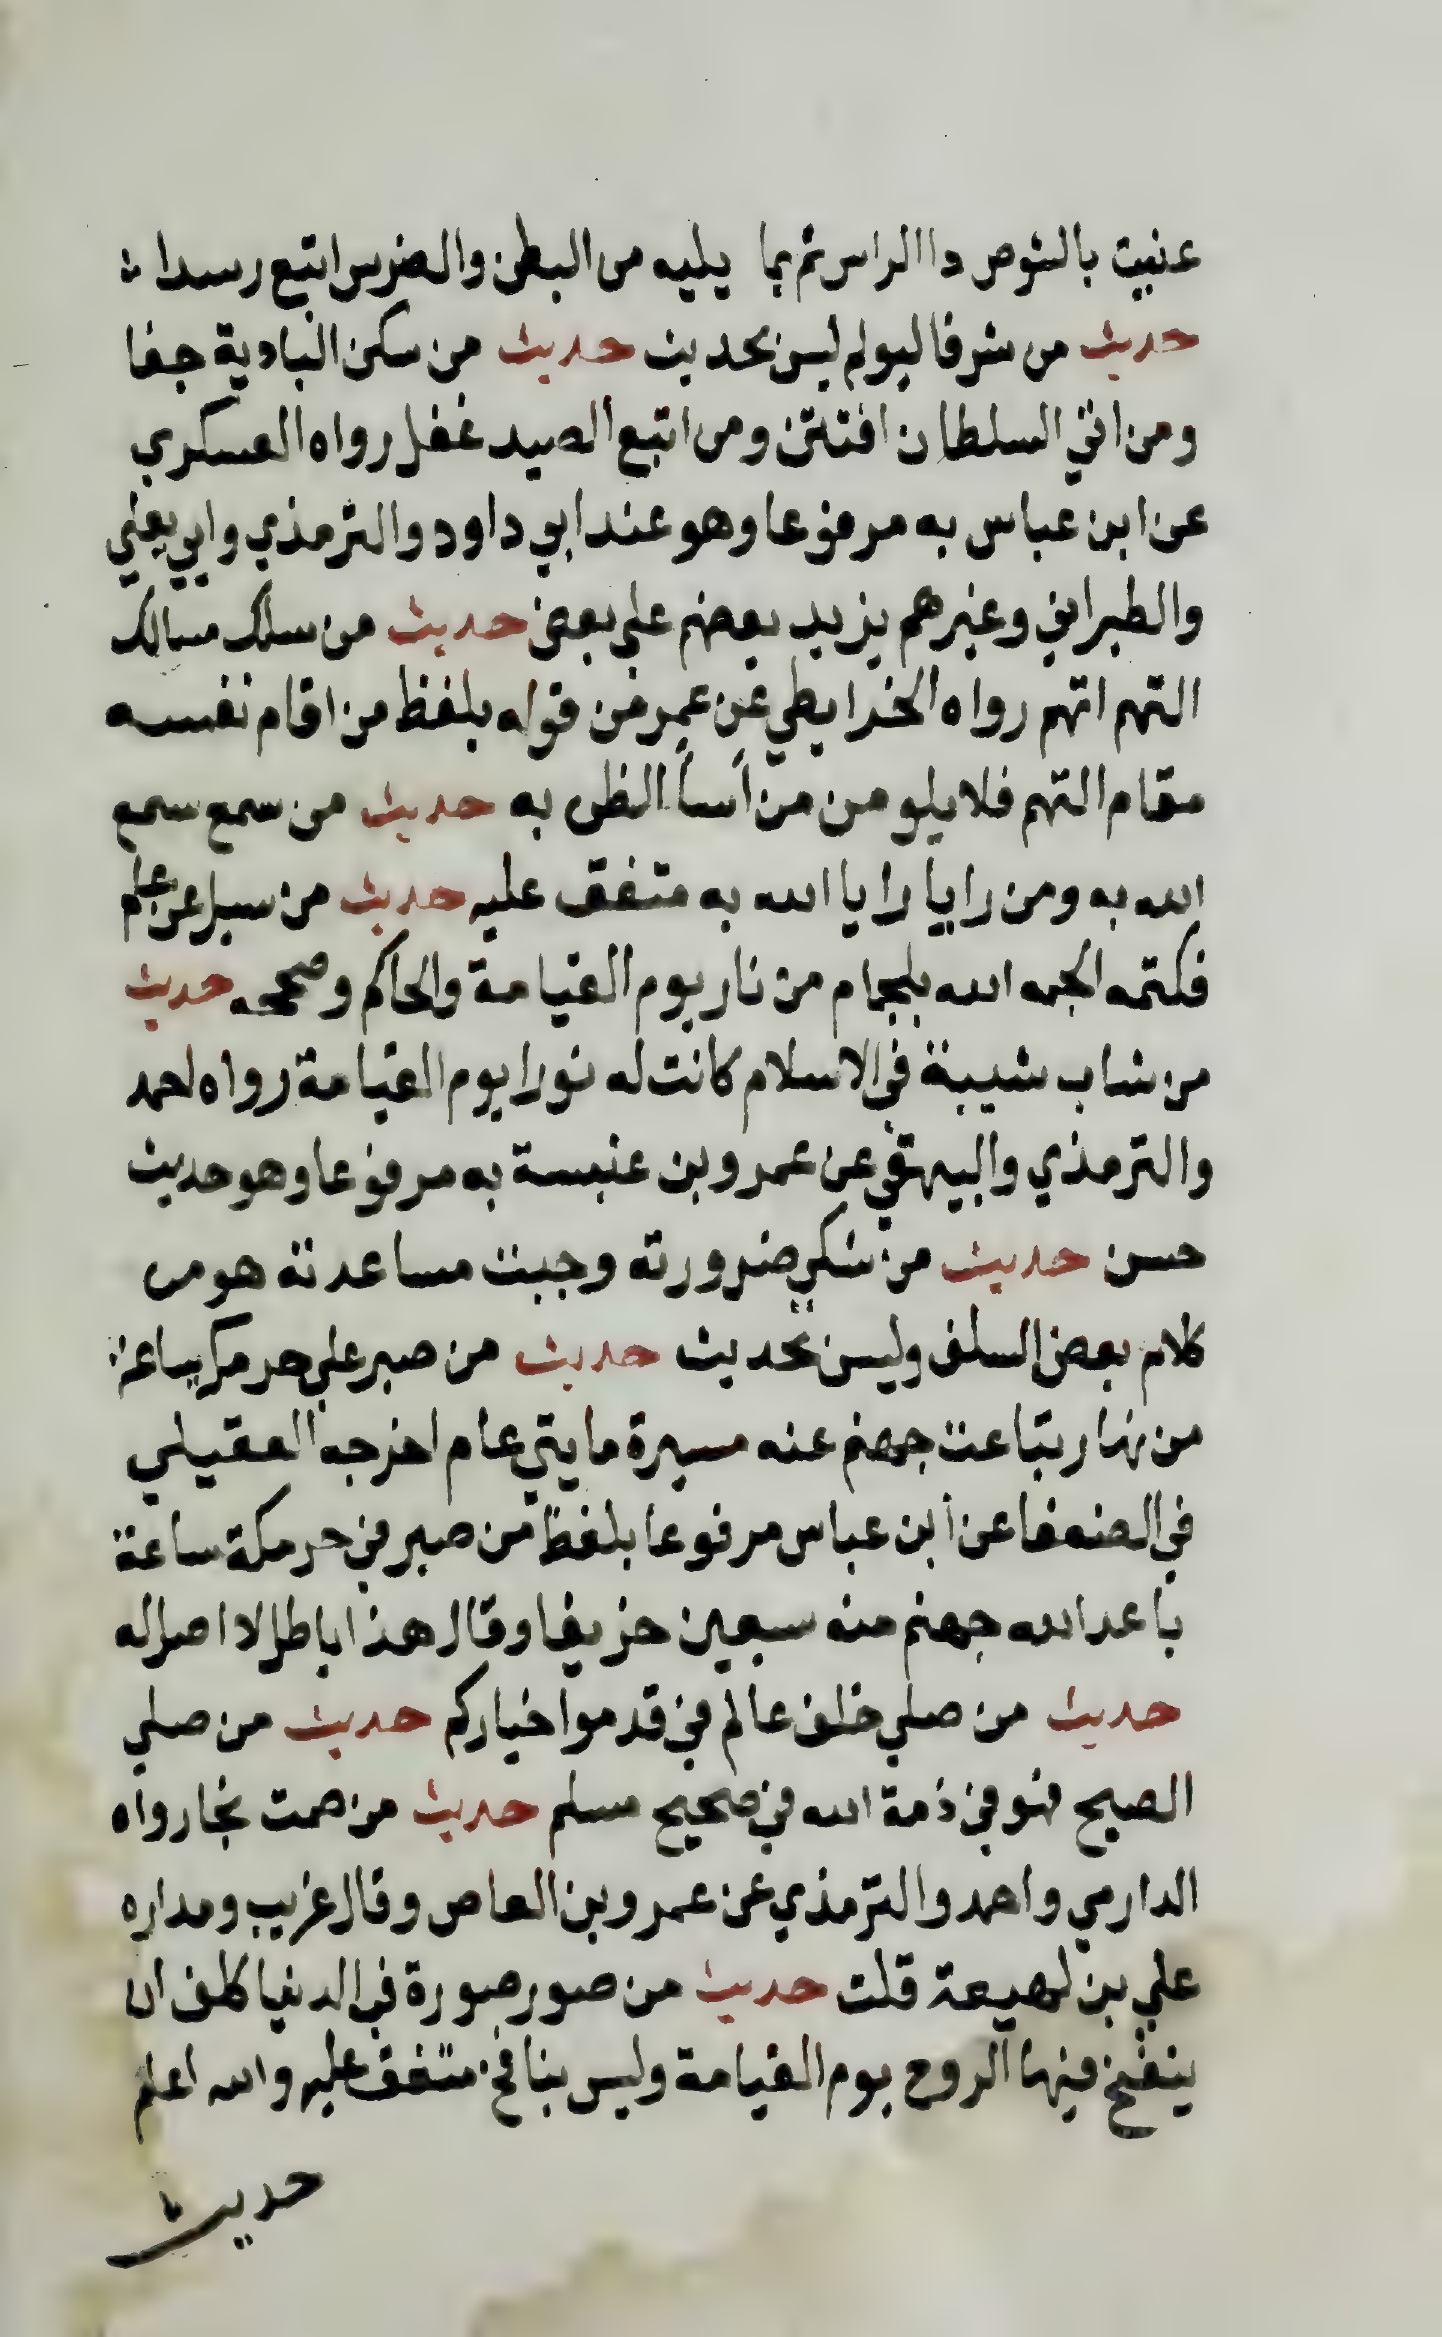 عنيت بالشوص داالراس ثم بما يليه من البطن والضرس اتبع رسدا
حديث من شرفا ليولم ليس بحديث حديث من سكن البادية جفا
ومن اتي السلطان افتتن ومن اتبع الصيد غفل رواه العسكري
عن ابن عباس به مرفوعا وهو عند ابي داود والترمذي وابي يعلي
والطبراني وغيرهم يزيد بعضهم علي بعض حديث من سلك مسالك
التهم اتهم رواه الخرايطي عن عمر من قوله بلفظ من اقام نفسه
مقام التهم فلا يلومن من أسأ الظن به حديث من سمع سمع
الله به ومن رايا رايا الله به متفق عليه حديث من سيل عن علم
فكتمه الجمه الله بلجام من نار يوم القيامة والحاكم وصححه حديث
من شاب شيبة في الاسلام كانت له نورا يوم القيامة رواه احمد
والترمذي والبيهقي عن عمرو بن عنبسة به مرفوعا وهو حديث
حسن حديث من شكي ضرورته وجبت مساعدته هو من
كلام بعض السلف وليس بحديث حديث من صبر علي حر مكة ساعة
من نهار تباعت جهنم عنه مسيرة مايتي عام اخرجه العقيلي
في الضعفا عن ابن عباس مرفوعا بلفظ من صبر في حر مكة ساعة
باعد الله جهنم منه سبعين خريفا وقال هذا باطل لا اصل له
حديث من صلي خلف عالم في قدموا خياركم حديث من صلي
الصبح فهو في ذمة الله في صحيح مسلم حديث من صمت نجا رواه
الدارمي واحمد والترمذي عن عمرو بن العاص وقال غريب ومداره
علي بن لهيعة قلت حديث من صور صورة في الدنيا كلف ان
ينفخ فيها الروح يوم القيامة وليس بنافخ متفق عليه والله اعلم
حديث